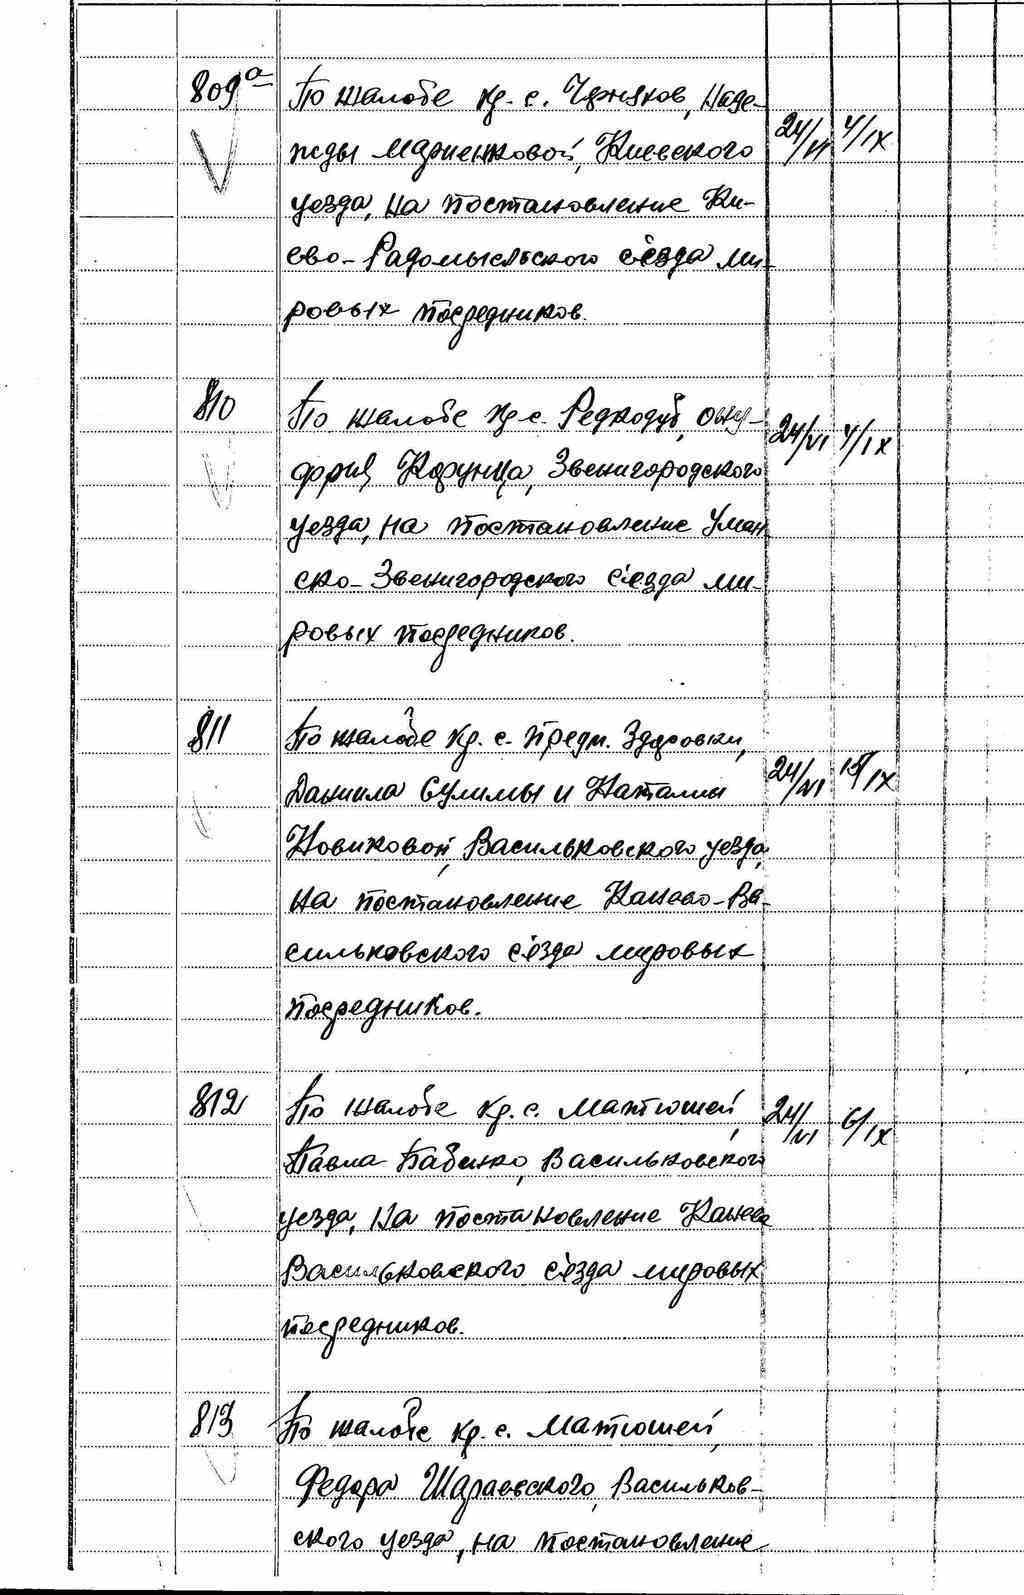 809а По жалобе кр. с. Черняхов, Наде-
жды Марченковой, Киевского 24/VI 4/IX
уезда, на постановление Ки-
ево-Радомысльского съезда ми-
ровых посредников.
810 По жалобе кр. с. Редкодуб, Ону-
фрия Корунца, Звенигородского 24/VI 4/IX
уезда, на постановление Уман
ско-Звенигородского съезда ми-
ровых посредников.
811 По жалобе кр. с. предм. Здоровки,
Даниила Сулимы и Наталии 24/VI 15/IX
Новиковой, Васильковского уезда,
на постановление Канево-Ва-
сильковского съезда мировых
посредников.
812 По жалобе кр. с. Матюшей, 24/VI 6/IX
Павла Бабенко, Васильковского
уезда, на постановление Канево
Васильковского съезда мировых
посредников.
813 По жалобе кр. с. Матюшей,
Федора Шараевского, Васильков-
ского уезда, на постановление